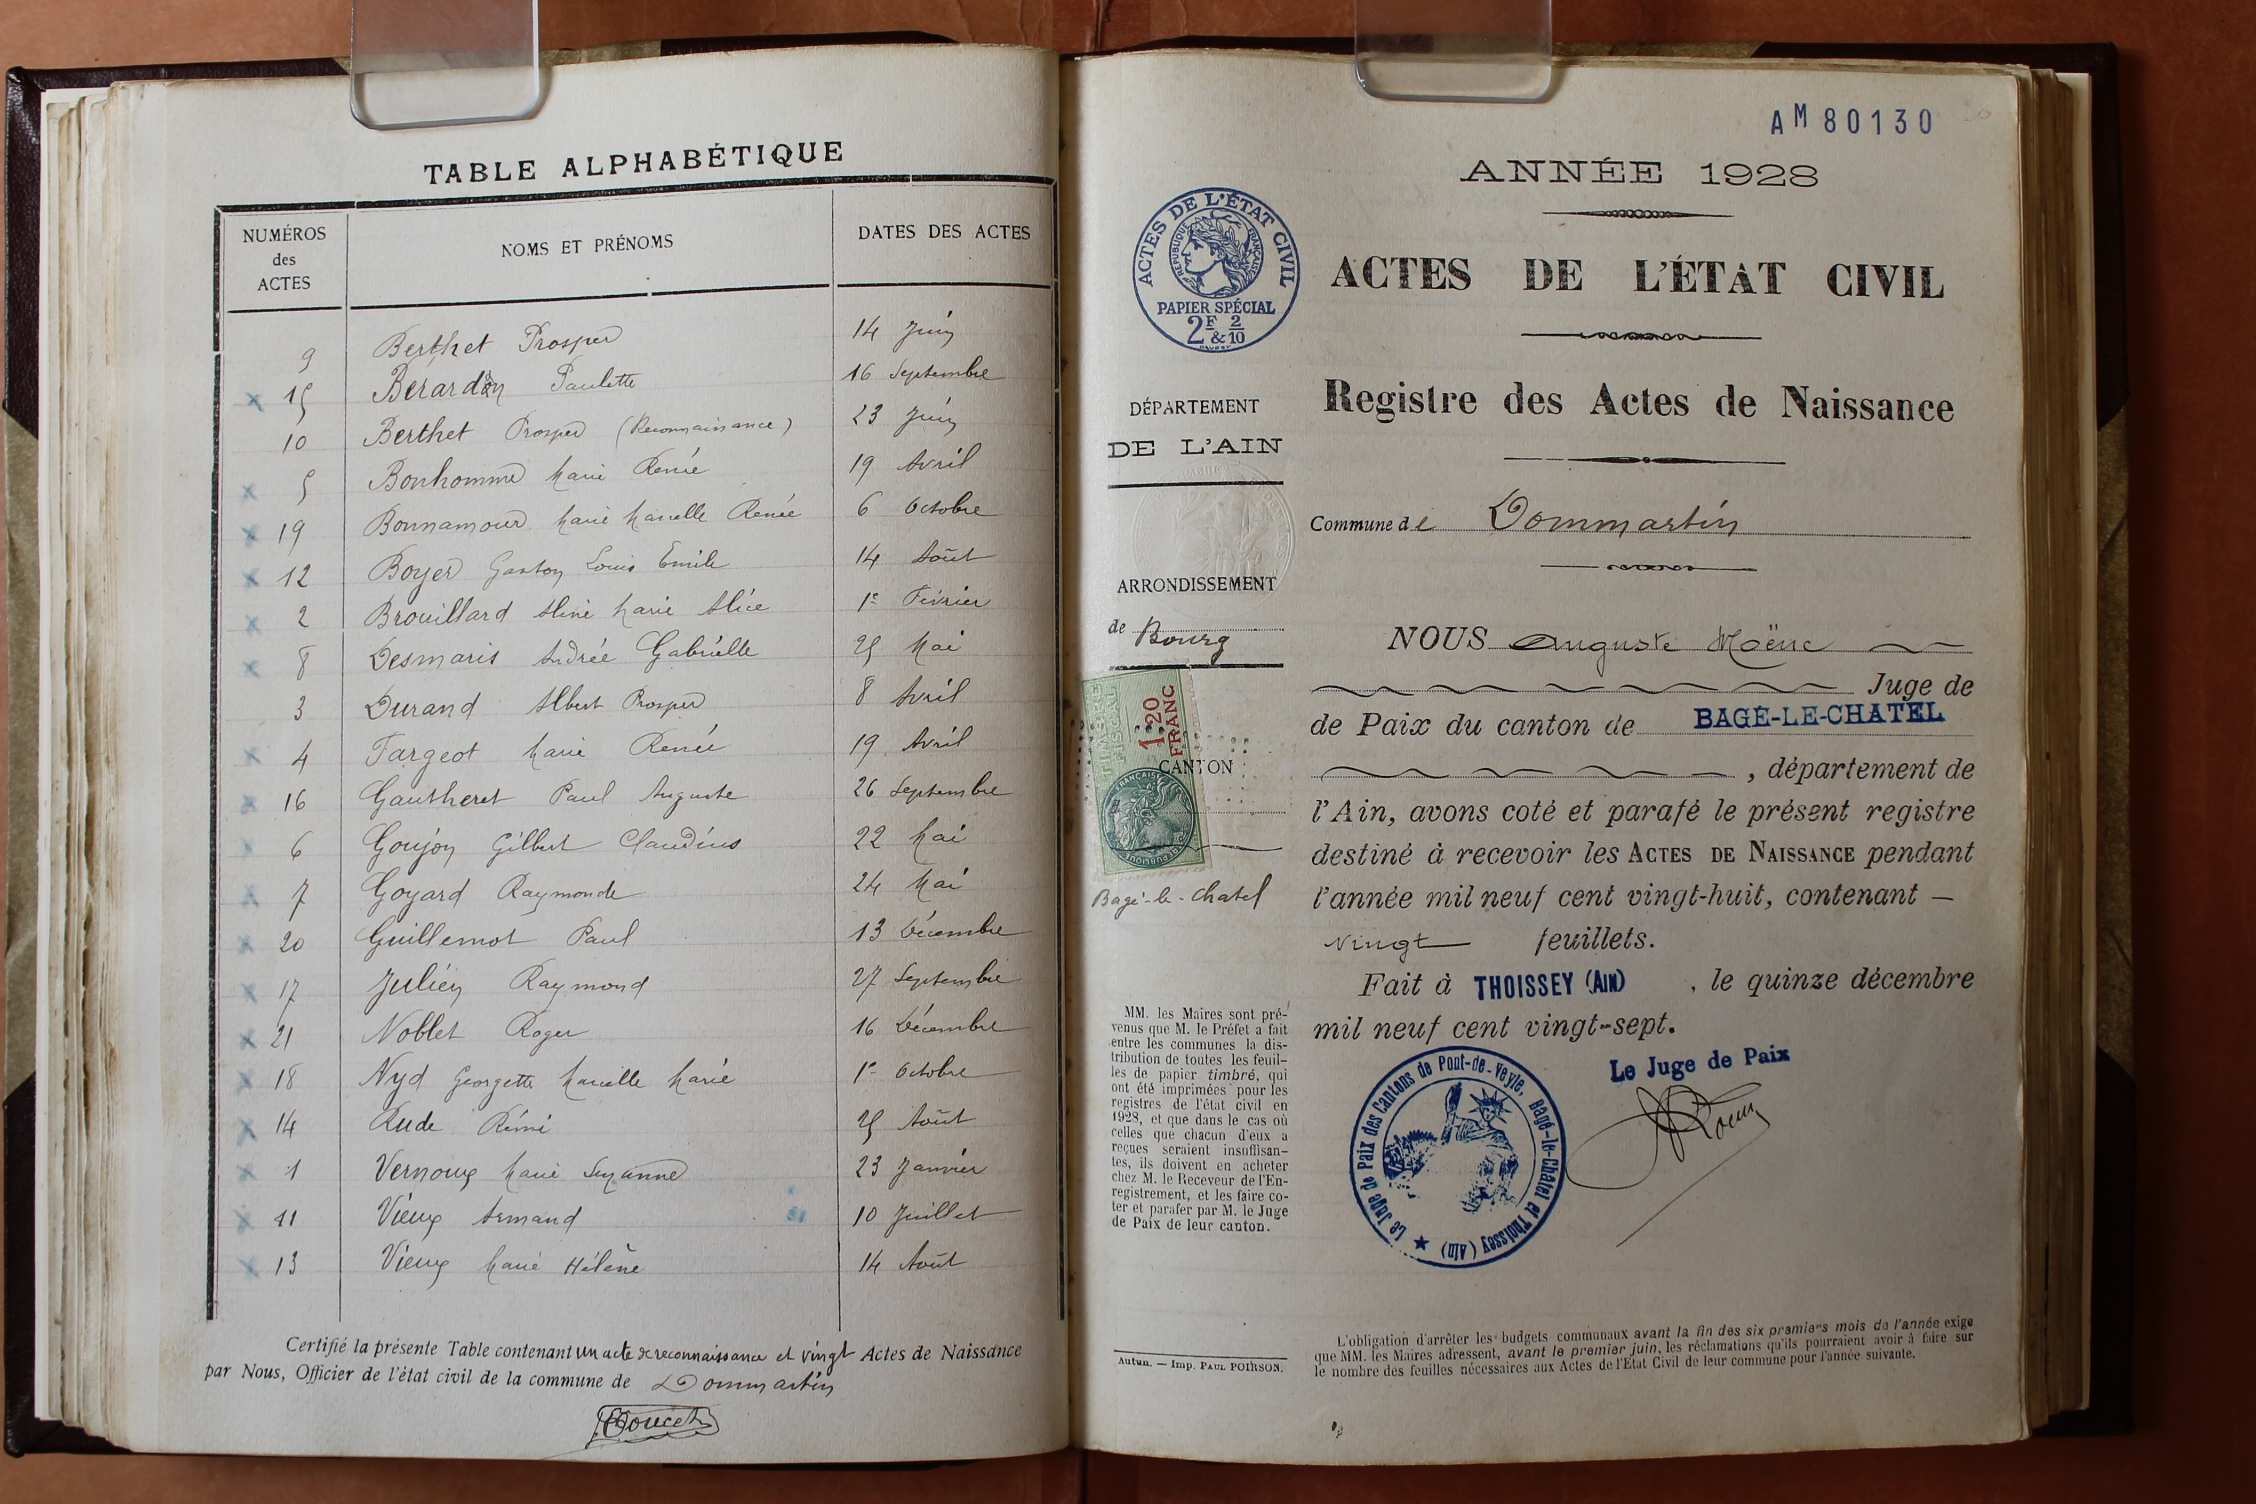 TABLE ALPHABÉTIQUE
NUMÉROS des ACTES NOMS ET PRÉNOMS DATES DES ACTES
9 Berthet Prosper 14 Juin
15 Bérardan Paulette 16 Septembre
10 Berthet Prosper (Reconnaissance) 23 Juin
5 Bonhomme Marie Renée 19 Avril
19 Bonnamour Marie Marcelle Renée 6 Octobre
12 Boyer Gaston Louis Emile 14 Août
2 Brouillard Aline Marie Alice 1er Février
8 Desmaris Andrée Gabrielle 25 Mai
3 Durand Albert Prosper 8 Avril
4 Fargeot Marie Renée 19 Avril
16 Gautheret Paul Auguste 26 Septembre
6 Goujon Gilbert Claudius 22 Mai
7 Goyard Raymonde 24 Mai
20 Guillemot Paul 13 Décembre
17 Julien Raymond 27 Septembre
21 Noblet Roger 16 Décembre
18 Nyd Georgette Marcelle Marie 1er Octobre
14 Rude Rémi 25 Août
1 Vernoux Marie Suzanne 23 Janvier
11 Vieux Armand 10 Juillet
13 Vieux Marie Hélène 14 Août
Certifié la présente Table contenant un acte de reconnaissance et vingt Actes de Naissance
par Nous, Officier de l'état civil de la commune de Dommartin
AM 80130
ANNÉE 1928
ACTES DE L'ÉTAT CIVIL
RÉPUBLIQUE FRANÇAISE
PAPIER SPÉCIAL
2F & 2/10
ACTES DE L'ÉTAT CIVIL
Registre des Actes de Naissance
DÉPARTEMENT
DE L'AIN
Commune de Dommartin
ARRONDISSEMENT
de Bourg
1.20
FRANC
CANTON
Bagé-le-Chatel
NOUS Auguste Moënc
Juge de
de Paix du canton de BAGÉ-LE-CHATEL
, département de
l'Ain, avons coté et parafé le présent registre
destiné à recevoir les ACTES DE NAISSANCE pendant
l'année mil neuf cent vingt-huit, contenant —
vingt feuillets.
Fait à THOISSEY (AIN) , le quinze décembre
mil neuf cent vingt-sept.
Le Juge de Paix
Le Juge de Paix des Cantons de Pont-de-Veyle, Bagé-le-Châtel et Thoissey (Ain)
MM. les Maires sont pré-
venus que M. le Préfet a fait
entre les communes la dis-
tribution de toutes les feuil-
les de papier timbré, qui
ont été imprimées pour les
registres de l'état civil en
1928, et que dans le cas où
celles que chacun d'eux a
reçues seraient insuffisan-
tes, ils doivent en acheter
chez M. le Receveur de l'En-
registrement, et les faire co-
ter et parafer par M. le Juge
de Paix de leur canton.
Autun. — Imp. PAUL POIRSON.
L'obligation d'arrêter les budgets communaux avant la fin des six premiers mois de l'année exige
que MM. les Maires adressent, avant le premier juin, les réclamations qu'ils pourraient avoir à faire sur
le nombre des feuilles nécessaires aux Actes de l'Etat Civil de leur commune pour l'année suivante.